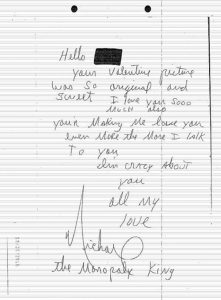 Hello
your Valentine picture
was so original and
sweet I love you sooo
much also
your Making Me love you
even More the More I talk
To you
Im crazy About
you
all my
love
Michael
the Monopoly King